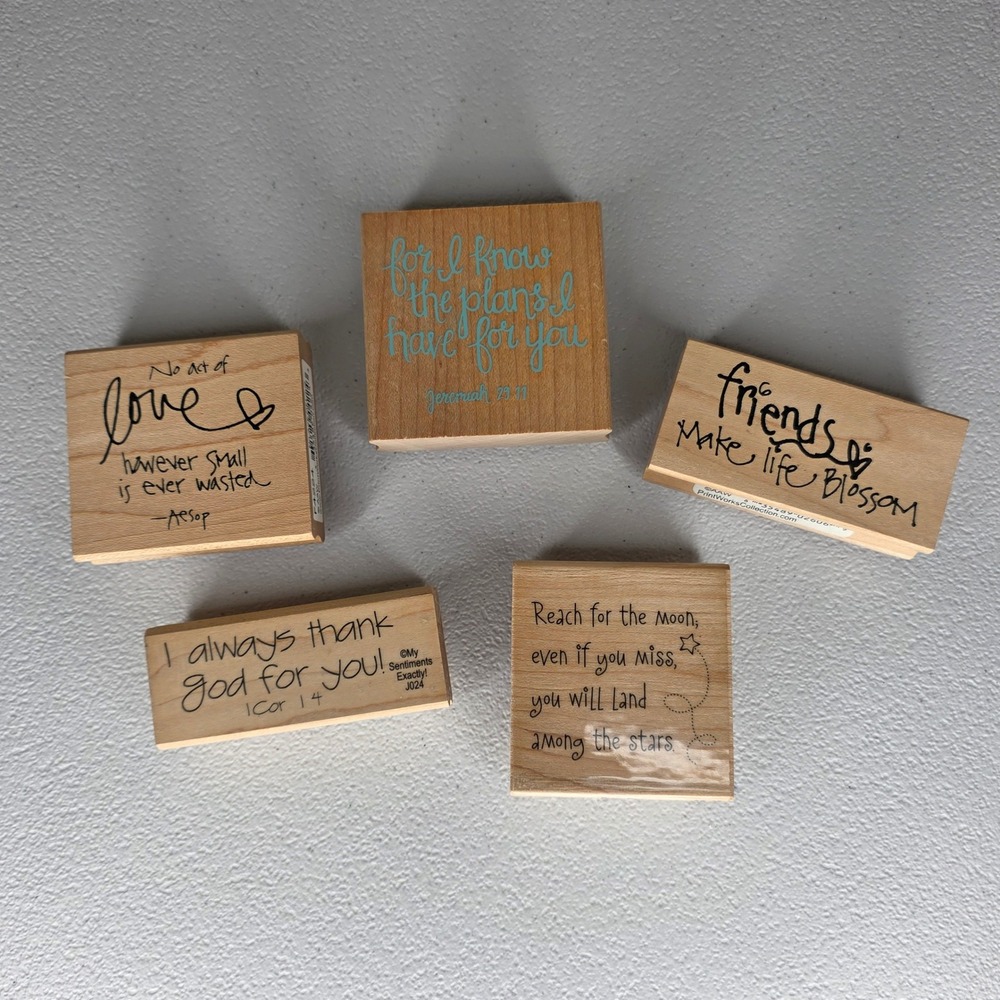 for I know
the plans I
have for you
Jeremiah 29:11
No act of
love
however small
is ever wasted
—Aesop
friends
Make life Blossom
PrintWorksCollection.com
I always thank
god for you!
1Cor 1 4
©My
Sentiments
Exactly!
J024
Reach for the moon;
even if you miss,
you will land
among the stars.